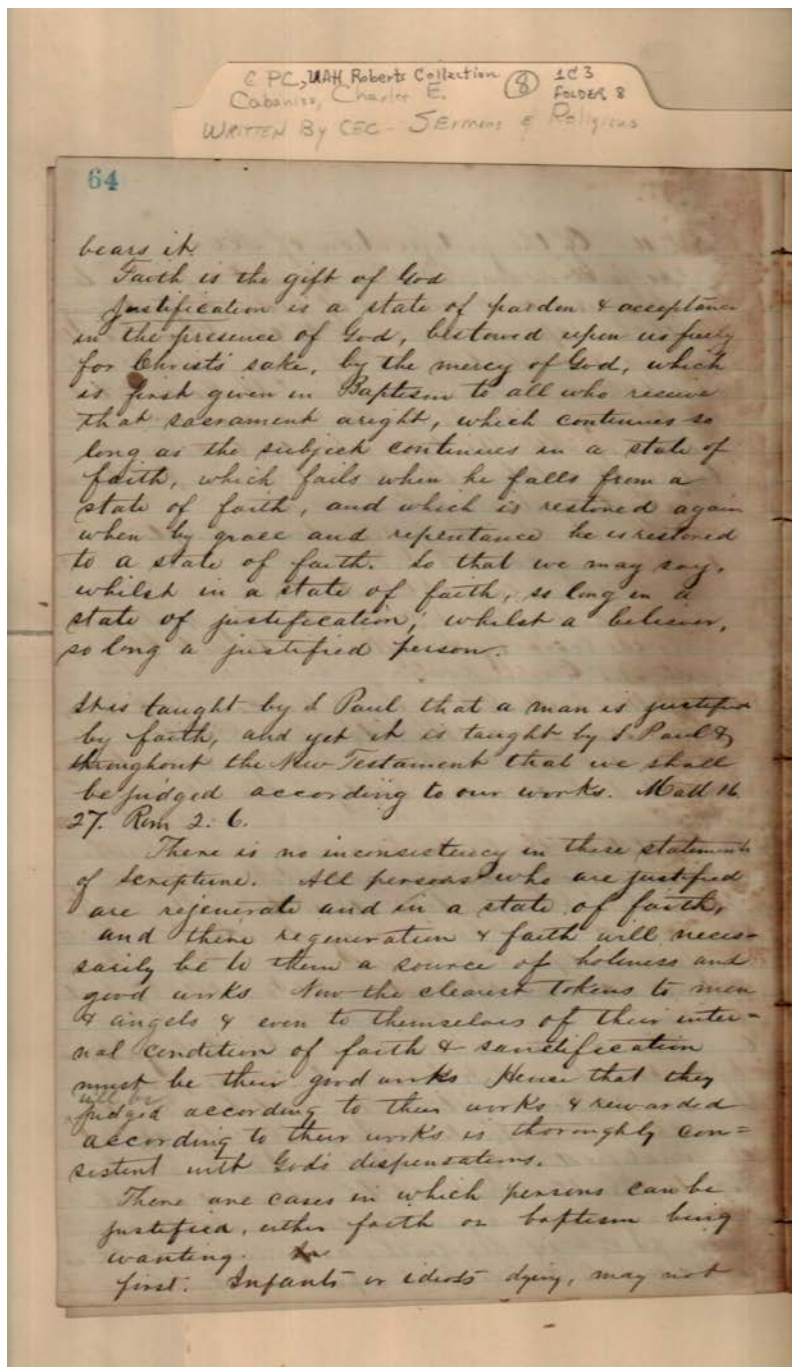 C PC, UAH Roberts Collection (8) 1C3
Cabaniss, Charles E. FOLDER 8
WRITTEN By CEC - Sermons & Religious
64
bears it.
Faith is the gift of God
Justification is a state of pardon & acceptance
in the presence of God, bestowed upon us freely
for Christ's sake, by the mercy of God, which
is first given in Baptism to all who receive
that sacrament aright, which continues so
long as the subject continues in a state of
faith, which fails when he falls from a
state of faith, and which is restored again
when by grace and repentance he is restored
to a state of faith. So that we may say,
whilst in a state of faith, so long in a
state of justification; whilst a believer,
so long a justified person.
It is taught by S Paul that a man is justified
by faith, and yet it is taught by S. Paul &
throughout the New Testament that we shall
be judged according to our works. Matt 16.
27. Rom 2. 6.
There is no inconsistency in these statements
of Scripture. All persons who are justified
are rejenerate and in a state of faith,
and there regeneration & faith will neces=
sarily be to them a source of holiness and
good works. Now the clearest tokens to men
& angels & even to themselves of their inter=
nal condition of faith & sanctification
must be their good works Hense that they
will be
judged according to their works & rewarded
according to their works is thoroughly con=
sistent with God's dispensations.
There are cases in which persons can be
justified, either faith or baptism being
wanting.
first. Infants or idiots dying, may not